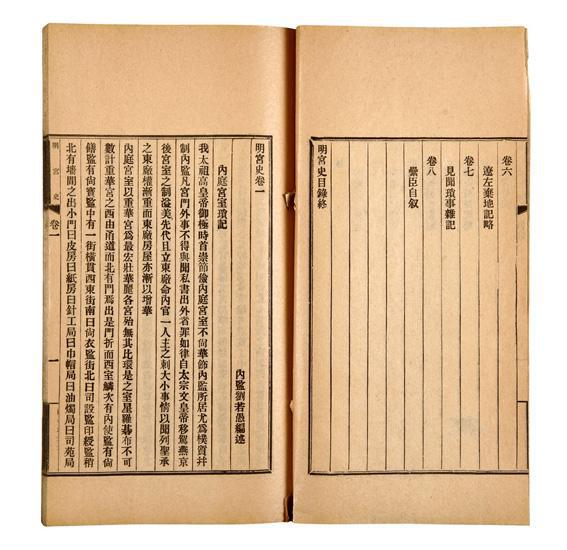 卷六
遼左棄地記略
卷七
見聞瑣事雜記
卷八
纍臣自叙
明宮史目錄終
明宮史卷一
內監劉若愚編述
內庭宮室瑣記
我太祖高皇帝御極時首崇節儉內庭宮室不尙華飾內監所居尤爲樸質幷
制內監凡宮門外事不得與聞私書出外者罪如律自太宗文皇帝移駕燕京
後宮室之制溢美先代且立東廠命內官一人主之刺大小事情以聞列聖承
之東廠權漸重而東廠房屋亦漸以增華
內庭宮室以重華宮爲最宏壯華麗各宮殆無其比環是之室星羅碁布不可
數計重華宮之西由甬道而北有門焉出是門折而西室鱗次有內使監有尙
饍監有尙寶監中有一街橫貫西東街南曰尙衣監街北曰司設監印綬監稍
北有墻間之出小門曰皮房曰紙房曰針工局曰巾帽局曰油燭局曰司苑局
明宮史
卷一
一